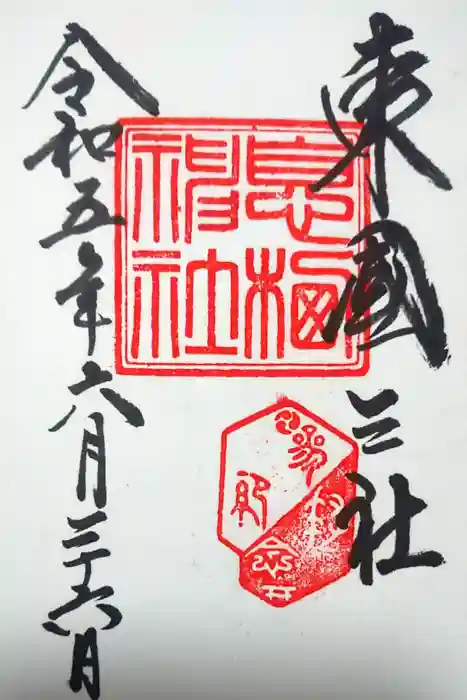 東國三社
息栖
神社
令和五年六月二十六日